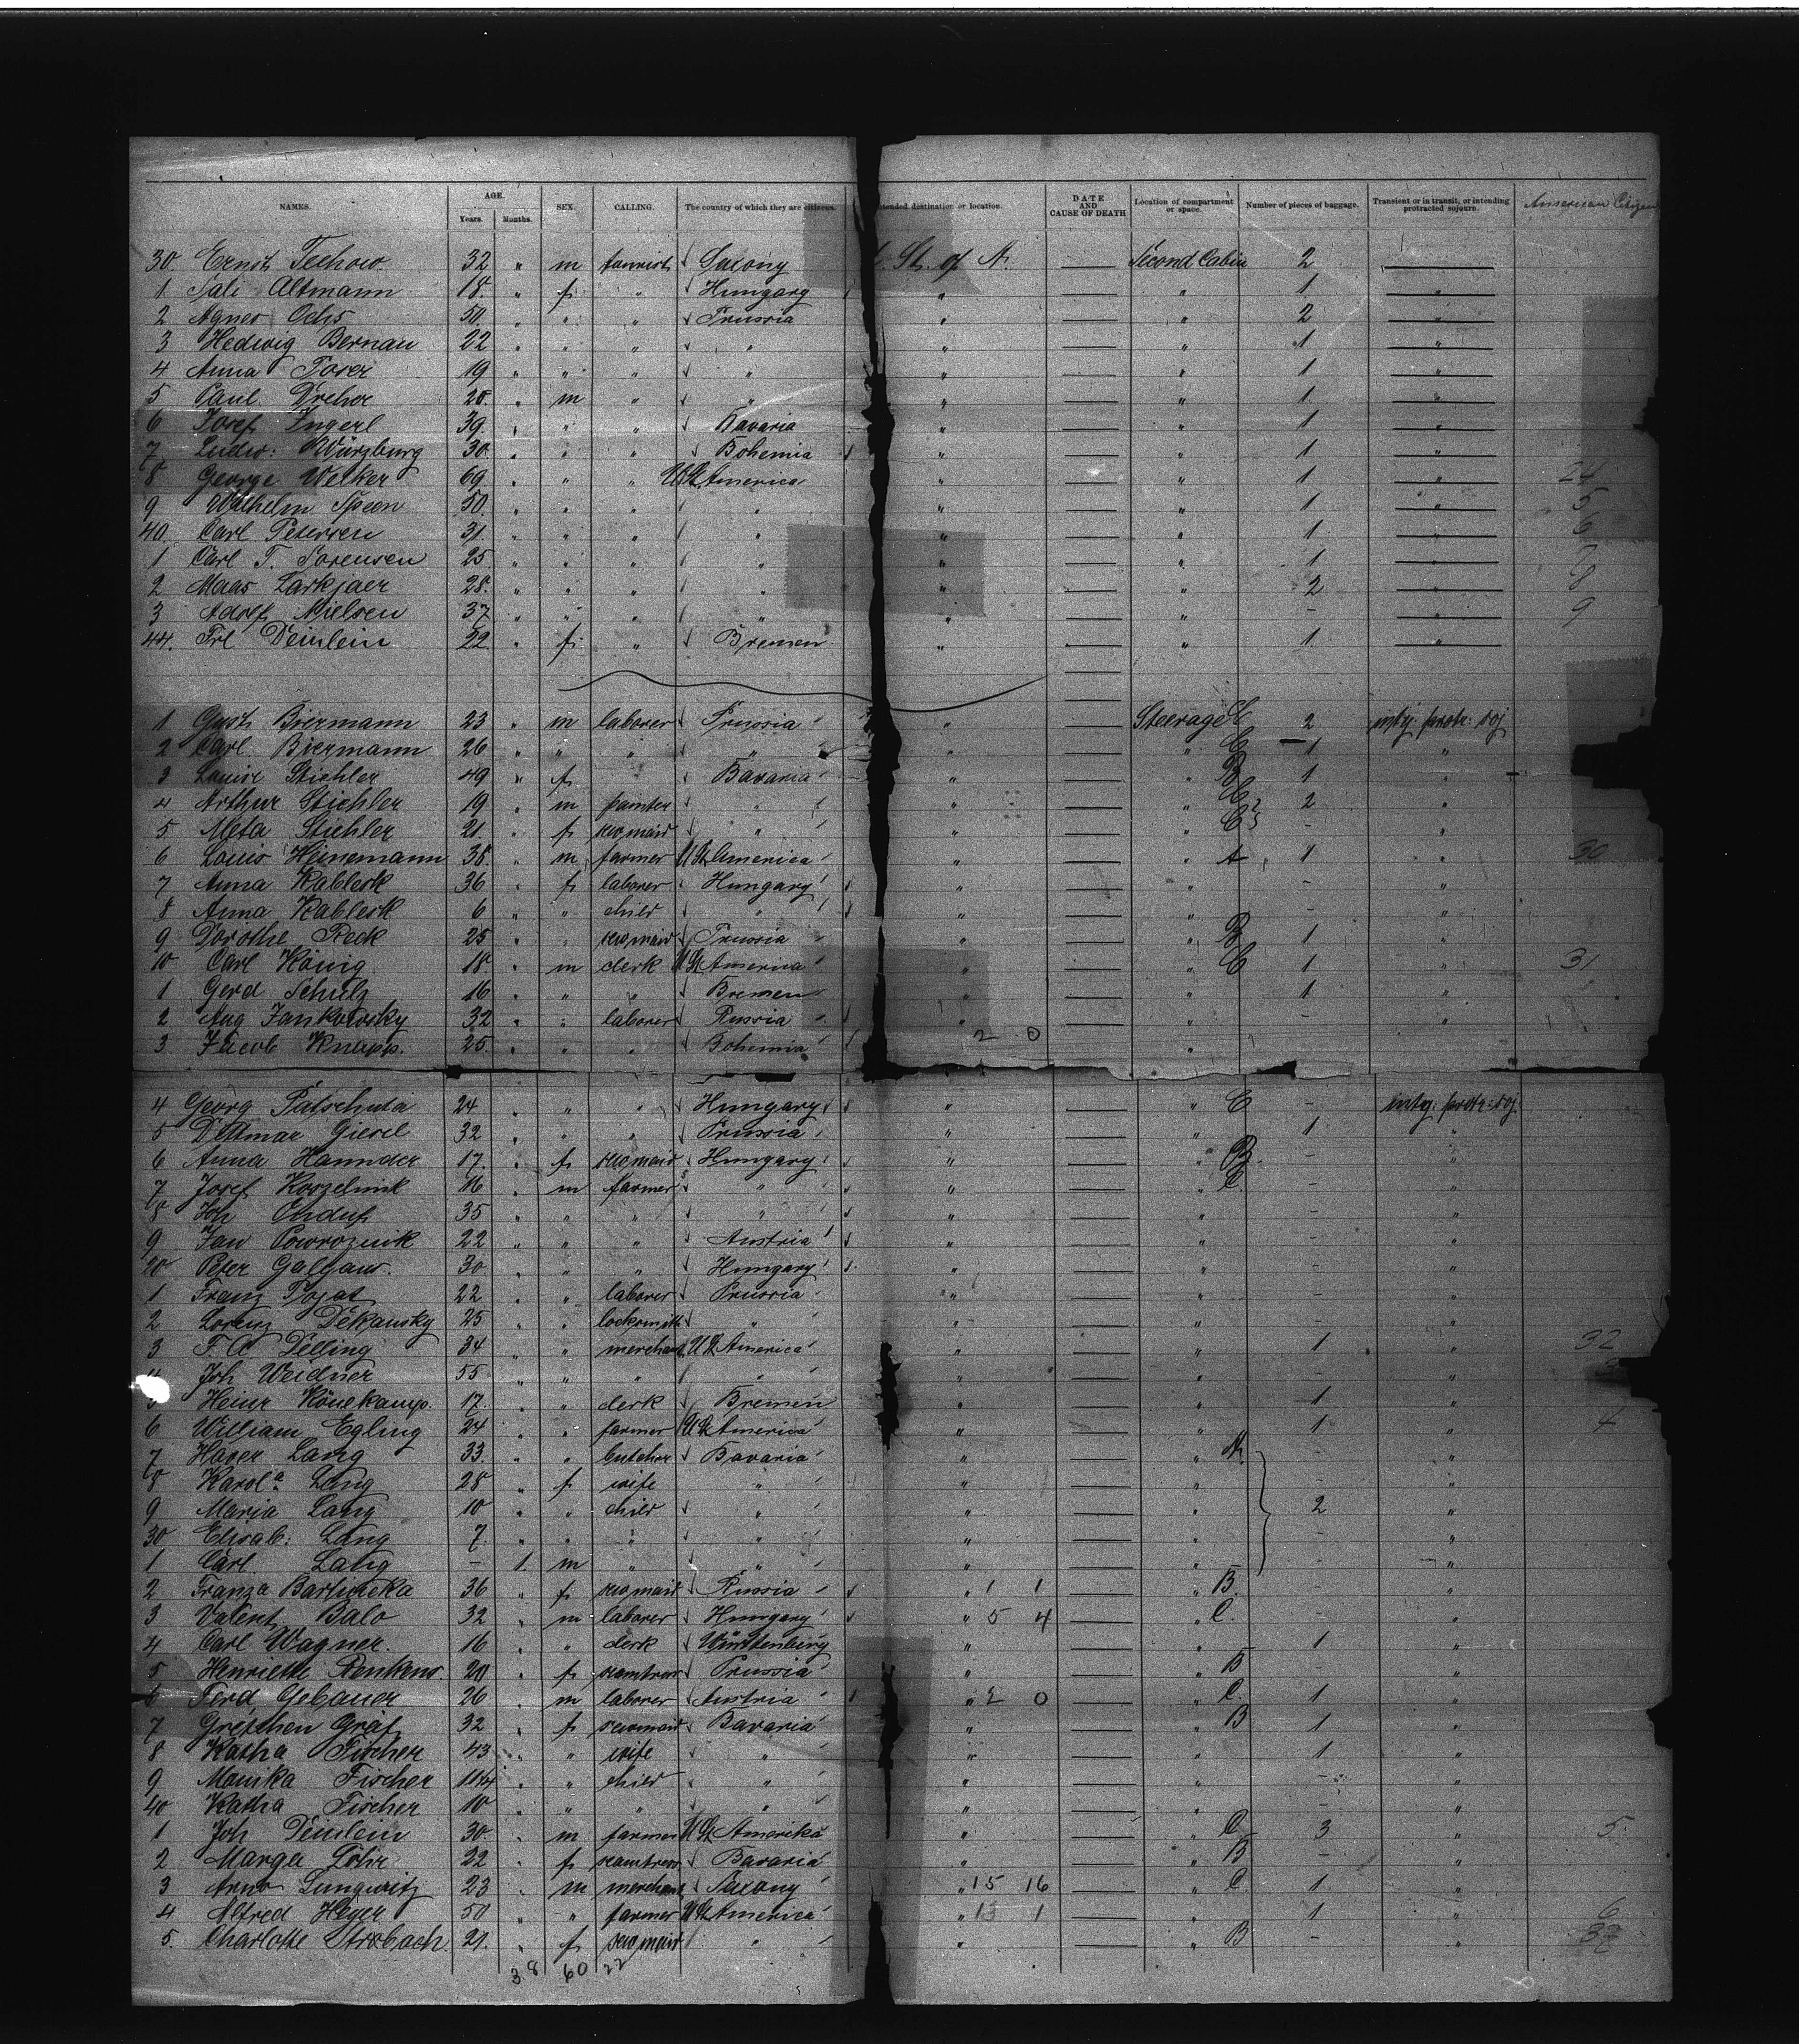 NAMES. AGE. Years. Months. SEX. CALLING. The country of which they are citizens. Intended destination or location. DATE AND CAUSE OF DEATH Location of compartment or space. Number of pieces of baggage. Transient or in transit, or intending protracted sojourn. American Citizen
30. Ernst Techow. 32 " m tourist Saxony St. of A. Second Cabin 2
1 Sali Altmann 18. " f " Hungary " " 1 "
2 Agnes Ochs 50. " " " Prussia " " 2 "
3 Hedwig Bernau 22 " " " " " " 1 "
4 Anna 19 " " " " " " 1 "
5 Paul Dreher 28. " m " " " " 1 "
6 Josef Ingerl 39. " " " Bavaria " " 1 "
7 Ludw: Würzburg 30. " " " Bohemia " " 1 "
8 George Welker 69. " " " U St America " " 1 " 24
9 Wilhelm Speen 50. " " " " " " 1 " 5
40. Carl Petersen 31. " " " " " " 1 " 6
1 Carl T. Sorensen 25. " " " " " " 1 " 7
2 Maas Larkjaer 28. " " " " " " 2 " 8
3 Adolf Nielsen 37 " " " " " " - " 9
44. Frl Deinlein 22. " f. " Bremen " " 1 "
1 Gust Biermann 23 " m laborer Prussia " Steerage C 2 intg: protr: soj
2 Carl Biermann 26 " " " " " " C 1 "
3 Louise Stichler 49 " f Bavaria " " B 1 "
4 Arthur Stichler 19 " m painter " " " C 2 "
5 Meta Stichler 21. " f servmaid " " " C - "
6 Louis Heinemann 38. " m farmer U St America " " A 1 " 30
7 Anna Kablesk 36 " f laborer Hungary " " - "
8 Anna Kablesk 6 " " child " " " - "
9 Dorothe Reck 25 " " servmaid Prussia " " B 1 "
10 Carl König 18 " m clerk U St America " " C 1 " 31
1 Gerd Schulz 16 " " " Bremen " " 1 "
2 Aug Jankowsky 32 " " laborer Russia " " - "
3 Jacob Knapp. 25. " " " Bohemia 2 0 "
4 Georg Patschuta 24 " " " Hungary " " C - intg: protr: soj.
5 Dettmar Giesel 32 " " " Prussia " " 1 "
6 Anna Hannder 17. " f servmaid Hungary " " B - "
7 Josef Koszelnik 16 " m farmer " " " C - "
8 Joh Onduf 35 " " " " " " - "
9 Jaw Powroznik 22 " " " Austria " " - "
20 Peter Galgaus. 30 " " " Hungary " " - "
1 Franz Pojat 22 " " laborer Prussia " " - "
2 Lorenz Dekansky 25 " " locksmith " " " - "
3 F. A Delling 34 " " merchant U St America " " 1 " 32
4 Joh Weidner 55 " " " " " " - " 3
5 Heinr Hönekamp. 17. " " clerk Bremen " " 1 "
6 William Egling 24 " " farmer U St America " " 1 " 4
7 Haver Lang 33. " " butcher Bavaria " " - "
8 Karola Lang 28 " f wife " " " - "
9 Maria Lang 10 " " child " " " 2 "
30 Elisab: Lang 7. " " " " " " - "
1 Carl Lang - 1. m " " " " - "
2 Franza 36 " f servmaid Russia " 1 1 " B. "
3 Valent Balo 32 " m laborer Hungary " 5 4 " C. - "
4 Carl Wagner. 16 " " clerk Württenberg " " 1 "
5 Henriette Renkens 20 " f seamtress Prussia " " B "
6 Ferd Gebauer 26 " m laborer Austria " 2 0 " C. 1 "
7 Gretchen Gräf 32 " f servmaid Bavaria " " B 1 "
8 Katha Fischer 43 " " wife " " " 1 "
9 Monika Fischer " " child " " " - "
40 Katha Fischer 10 " " " " " " - "
1 Joh Deinlein 30. " m farmer U St Amerika " " C 3 " 5
2 Marga Löhr 22 " f seamtress Bavaria " " B - "
3 Arno Lungwitz 23 " m merchant Saxony " 15 16 " C. 1 "
4 Alfred Heyer 50 " " farmer U St America " 13 1 " 1 " 6
5. Charlotte Strobach. 21. " f servmaid " " " B - " 37
38 60 22 8